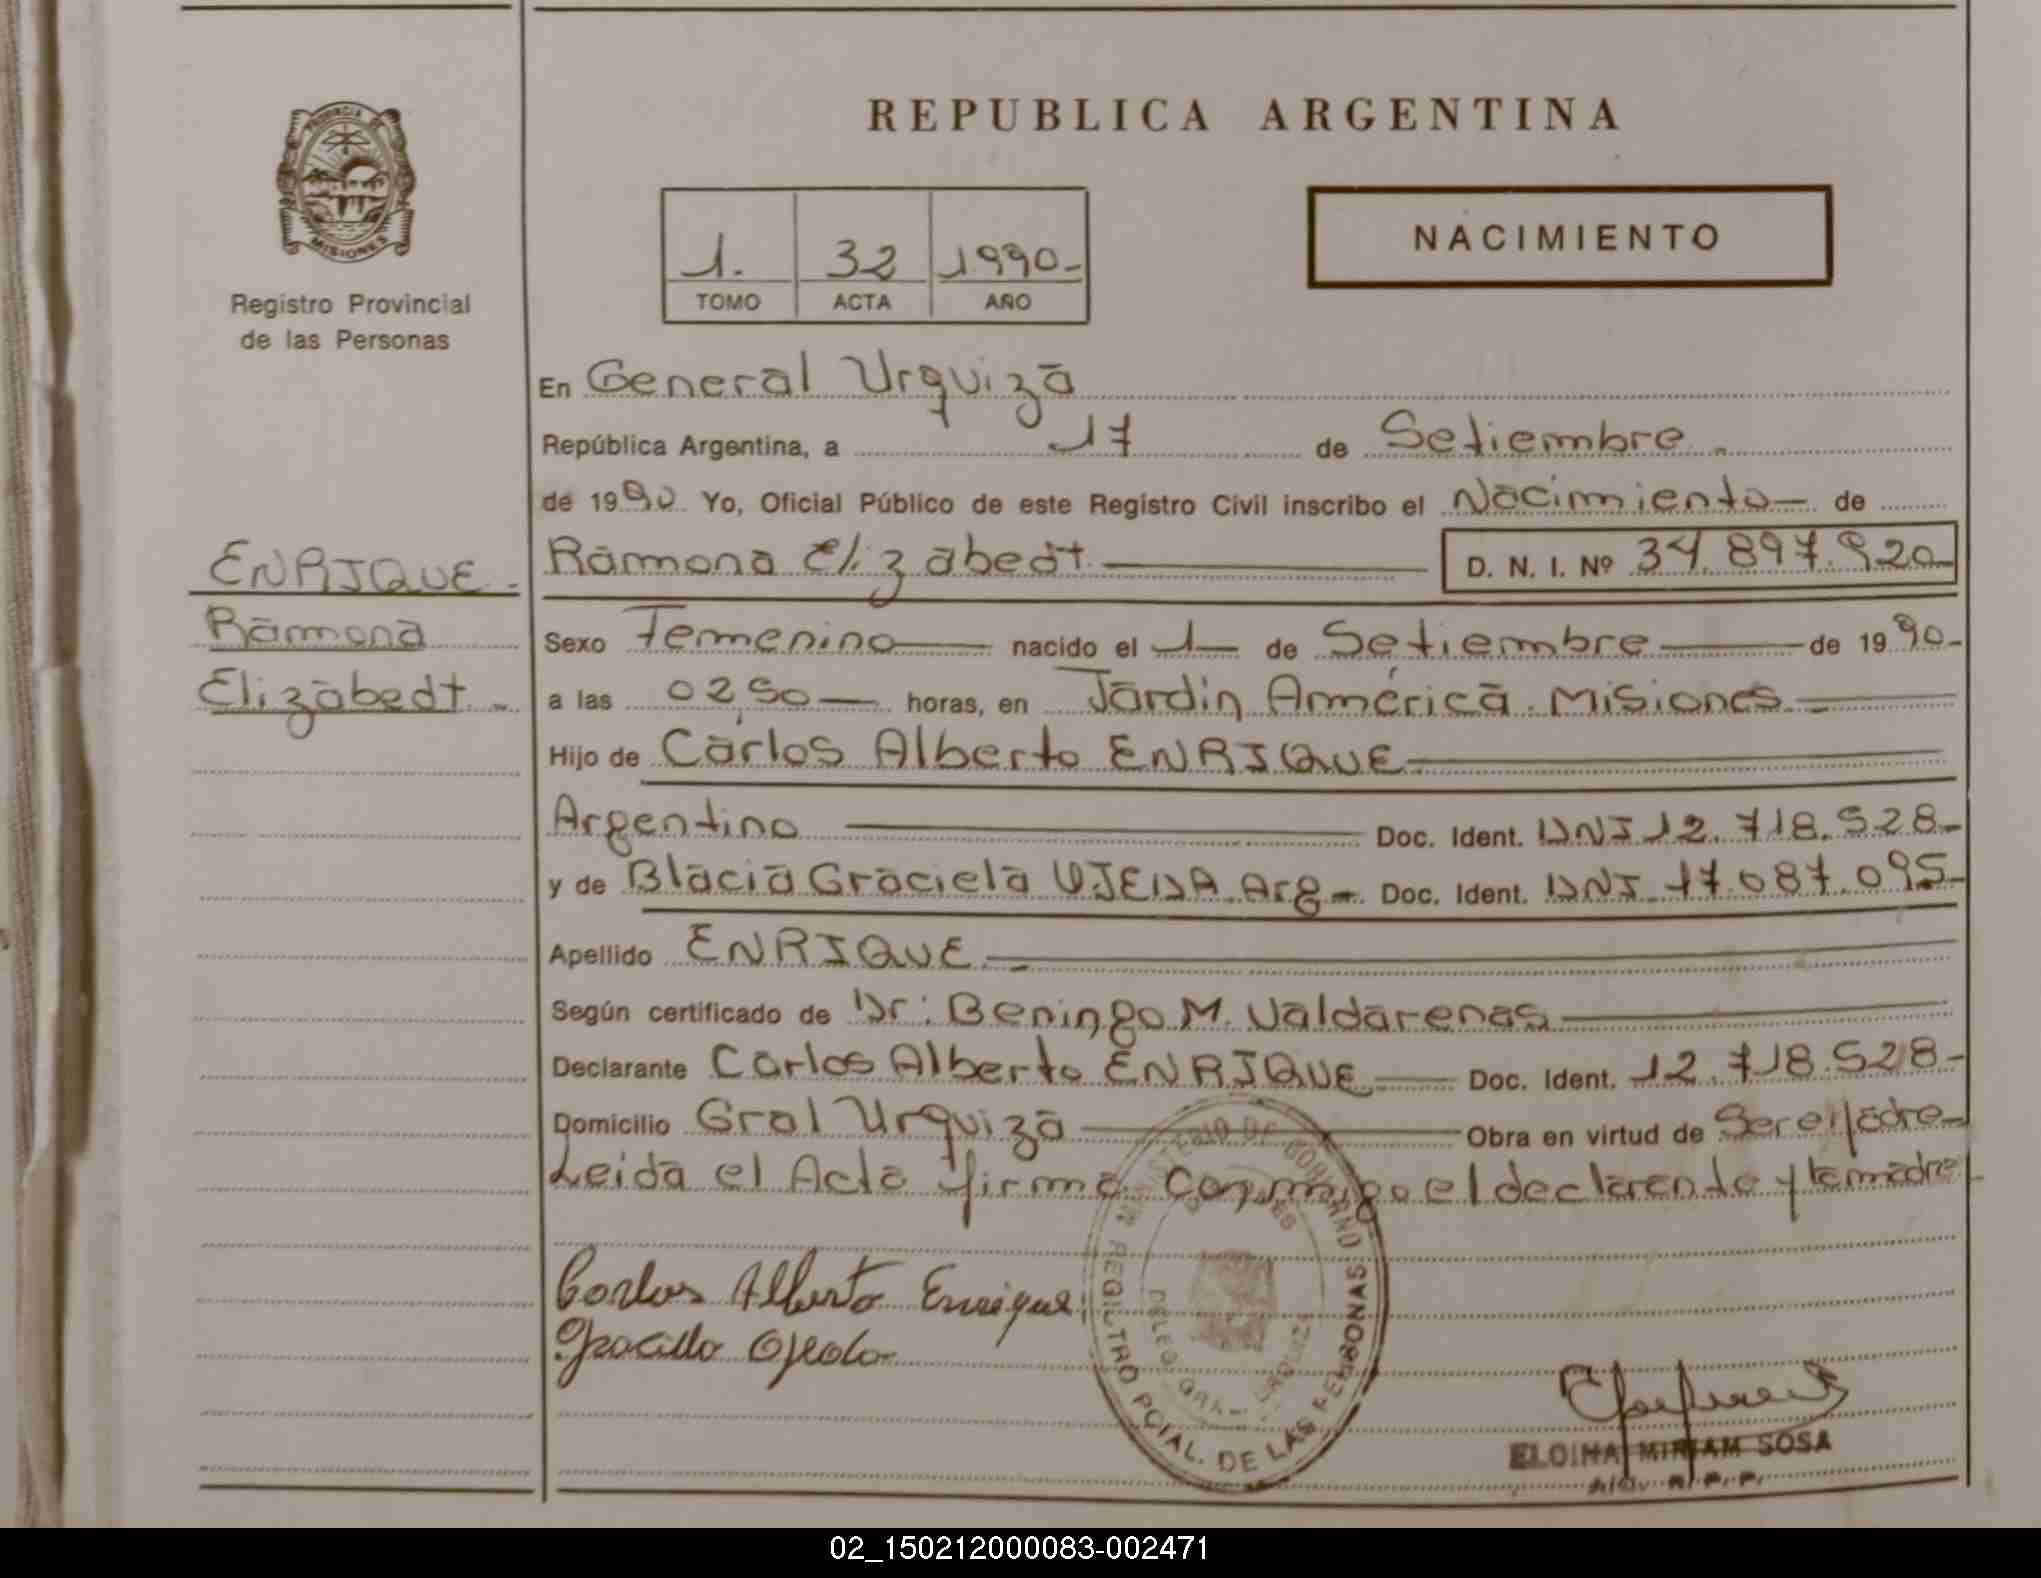 REPUBLICA ARGENTINA
PROVINCIA DE
MISIONES
Registro Provincial
de las Personas
1. 32 1990-
TOMO ACTA AÑO
NACIMIENTO
En General Urquiza
República Argentina, a 17 de Setiembre.
de 1990 Yo, Oficial Público de este Registro Civil inscribo el Nacimiento de
ENRIQUE.
Ramona
Elizabedt.
Ramona Elizabedt D. N. I. Nº 34.897.920
Sexo Femenino nacido el 1 de Setiembre de 1990-
a las 02,50 horas, en Jardin América. Misiones
Hijo de Carlos Alberto ENRIQUE
Argentino Doc. Ident. DNI 12.718.528-
y de Blacia Graciela OJEDA. Arg. Doc. Ident. DNI 17.087.095-
Apellido ENRIQUE
Según certificado de Dr: Beningo M. Valdarenas
Declarante Carlos Alberto ENRIQUE Doc. Ident. 12.718.528-
Domicilio Gral Urquiza Obra en virtud de Ser el Padre
Leida el Acta firma conmigo el declarante y la madre
Carlos Alberto Enrique
Ojeda
MINISTERIO DE GOBIERNO
REGISTRO PCIAL. DE LAS PERSONAS
ELOINA MIRIAM SOSA
02_150212000083-002471